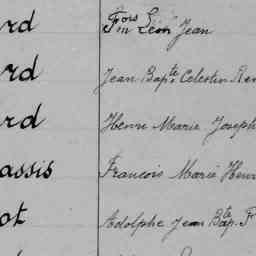 rd Fois Léon Jean
rd Jean Bapte Celestin Ren
rd Henri Marie Joseph
assis Francois Marie Henr
ot Adolphe Jean Bapte F